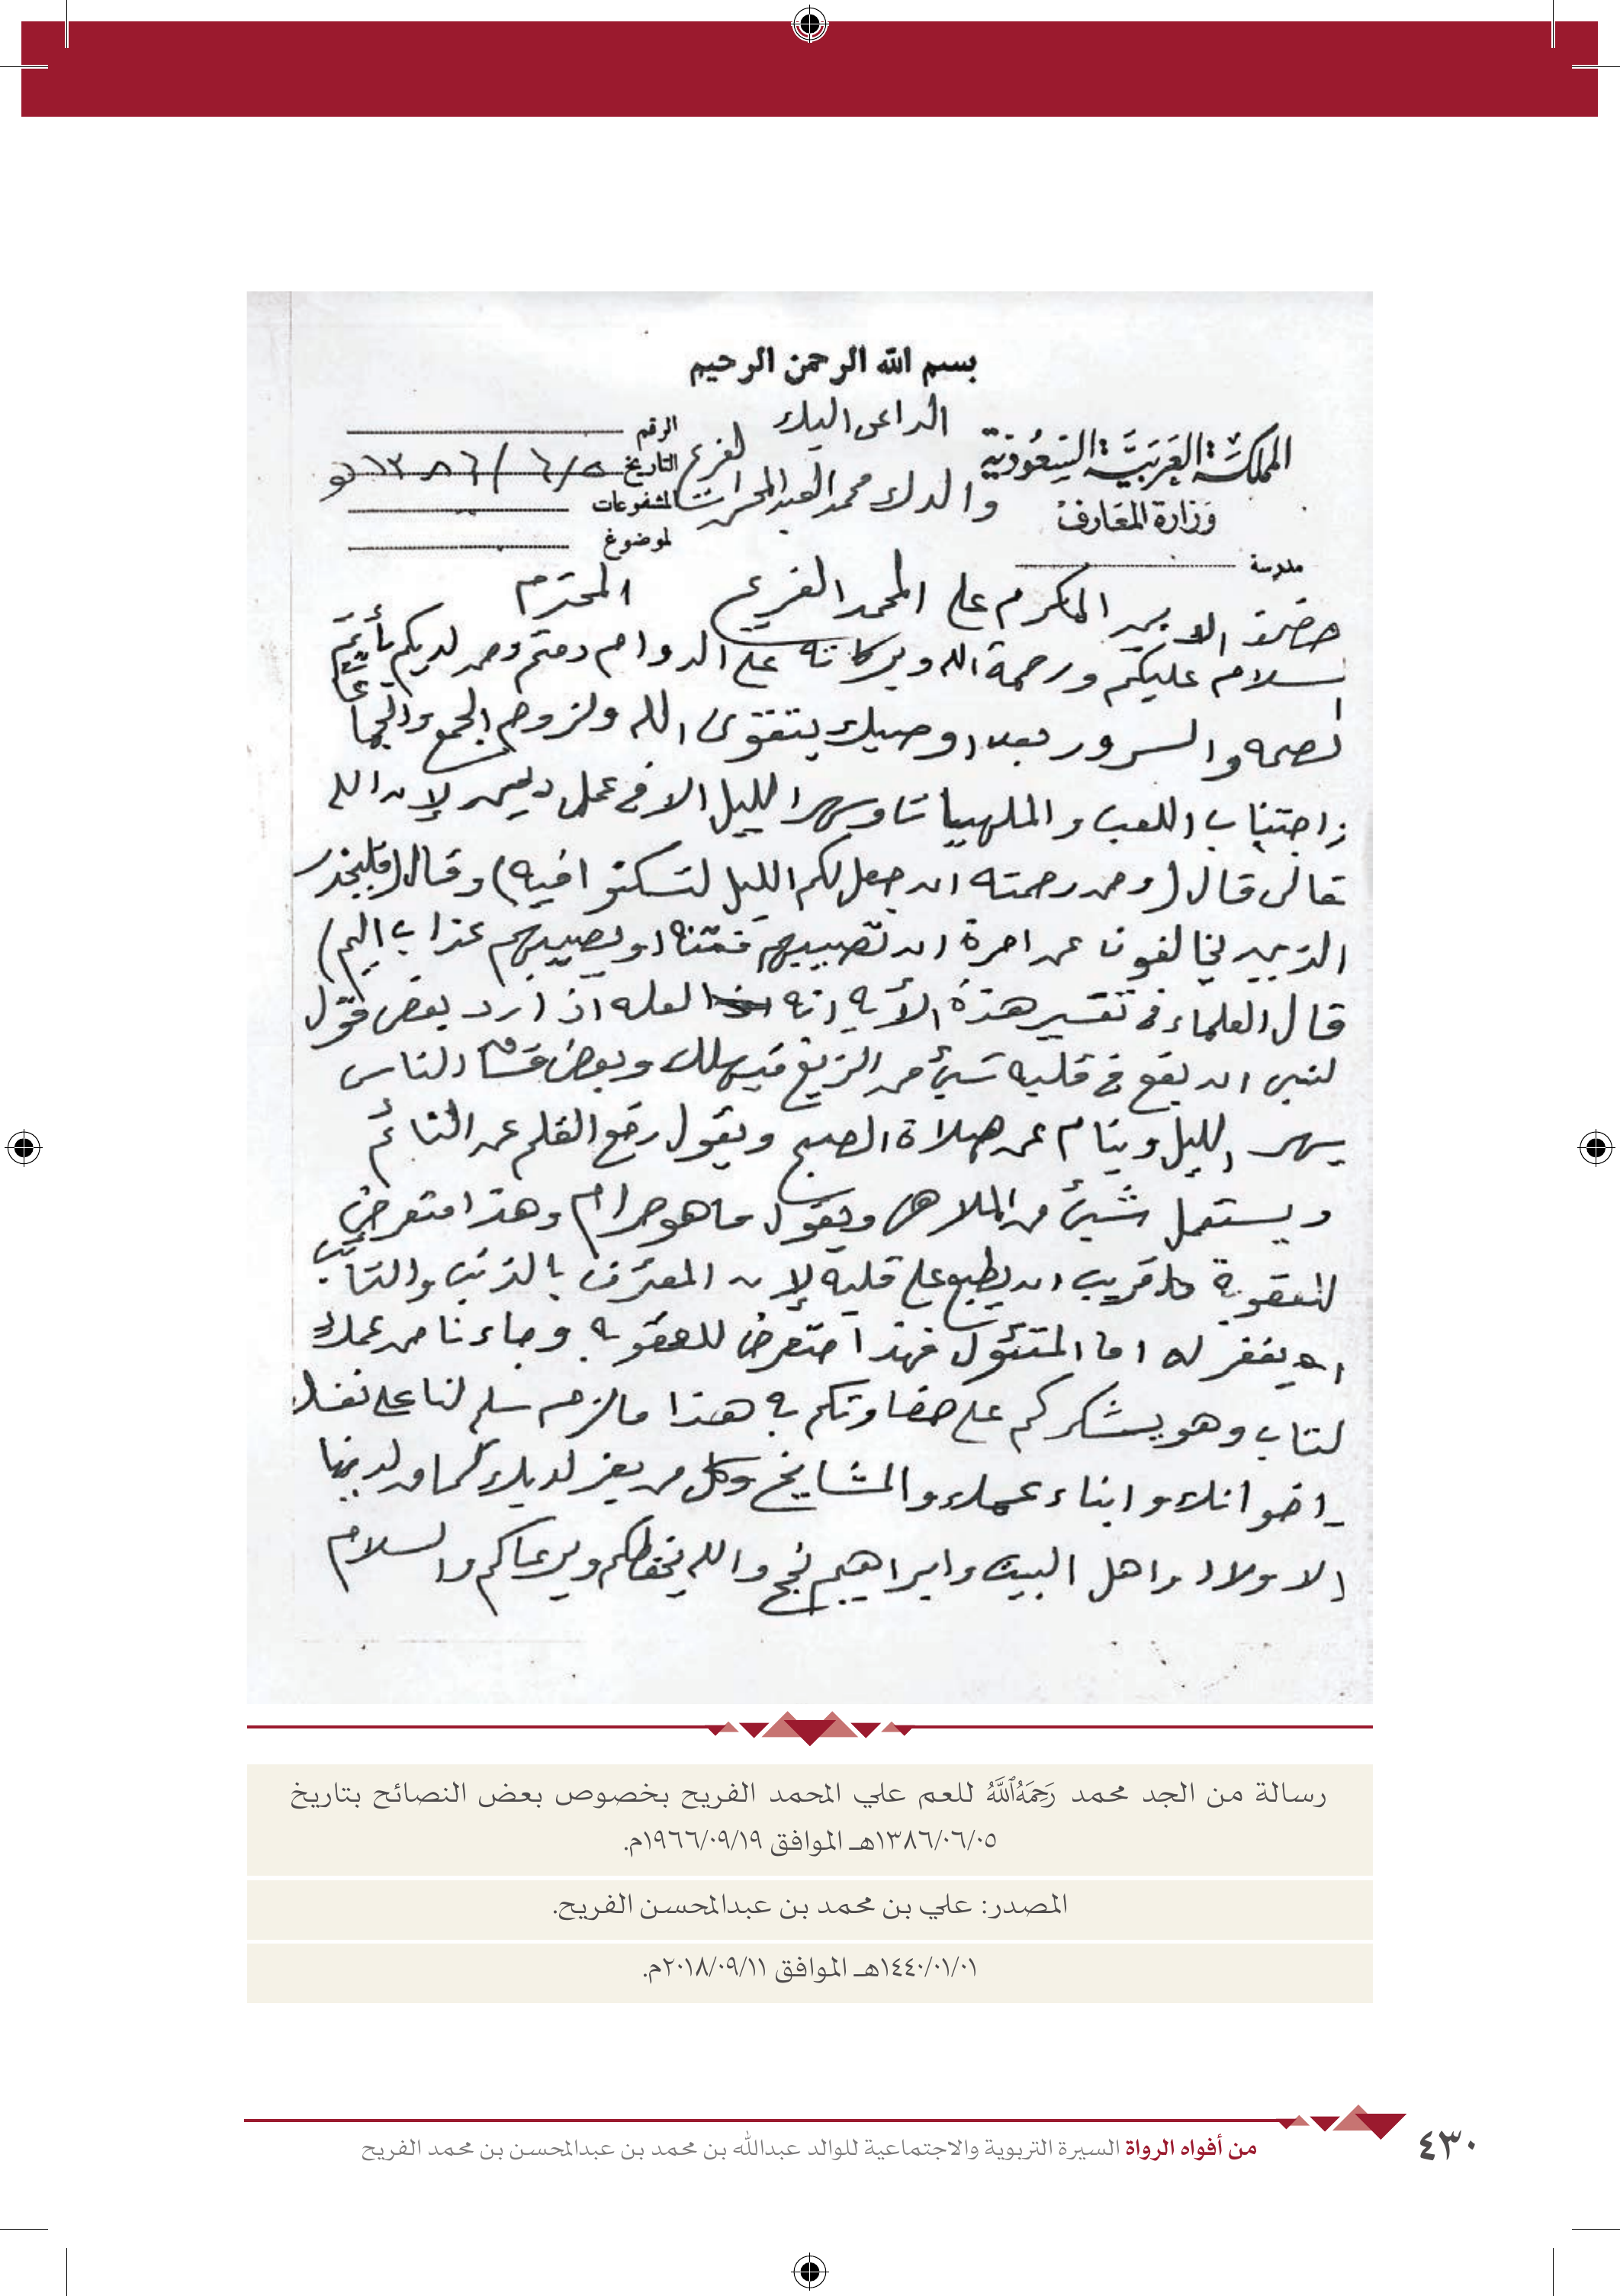 بسم الله الرحمن الرحيم
المملكة العربية السعودية
وزارة المعارف
مدرسة
الرقم
التاريخ ٥/٦/١٣٨٦
المشفوعات
لموضوع
الداعي اليك
والدك محمد العبدالمحسن الفريح
حضرة الابن المكرم علي المحمد الفريح المحترم
السلام عليكم ورحمة الله وبركاته على الدوام دمتم ومن لديكم بأتم
لصحه والسرور بعده اوصيك بتقوى الله ولزوم الجمع والجماعا
واجتناب اللعب والملهيات وسهر الليل الا في عمل لإن الله
تعالى قال (ومن رحمته ان جعل لكم الليل لتسكنوا فيه) وقال (فليحذر
الذين يخالفون عن امره ان تصيبهم فتنه او يصيبهم عذاب اليم)
قال العلماء في تفسير هذه الأيه انه لعله اذ ارد بعض قول
لنبي ان يقع في قلبه شيئ من الزيغ فيهلك وبعض الناس
يسهر الليل وينام عن صلاة الصبح ويقول رفع القلم عن النائم
ويستعمل شيئ من الملاهي ويقول ما هو حرام وهذا متعرض
للعقوبة قريب ان يطبع على قلبه لإن المعترف بالذنب والتائب
يغفر له اما المتئول فهذا متعرض للعقوبه وجاءنا من عمك
لتاب وهو يشكركم على حفاوتكم به هذا مالزم سلم لنا على نفسك
اخوانك وابناء عمك والمشايخ وكل من يعز لديك كما من لدينا
الاولاد واهل البيت وابراهيم والله يحفظكم ويرعاكم والسلام
رسالة من الجد محمد رَحِمَهُ ٱللَّهُ للعم علي المحمد الفريح بخصوص بعض النصائح بتاريخ
١٣٨٦/٠٦/٠٥هـ الموافق ١٩٦٦/٠٩/١٩م.
المصدر: علي بن محمد بن عبدالمحسن الفريح.
١٤٤٠/٠١/٠١هـ الموافق ٢٠١٨/٠٩/١١م.
من أفواه الرواة السيرة التربوية والاجتماعية للوالد عبدالله بن محمد بن عبدالمحسن بن محمد الفريح
٤٣٠